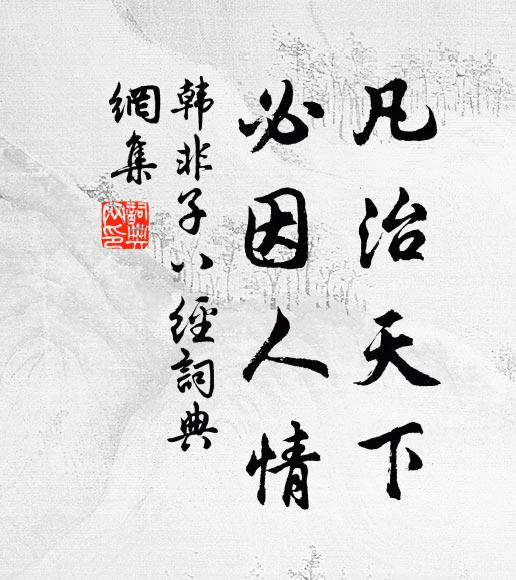 凡治天下
必因人情
韩非子八經詞典
網集
詞典网印